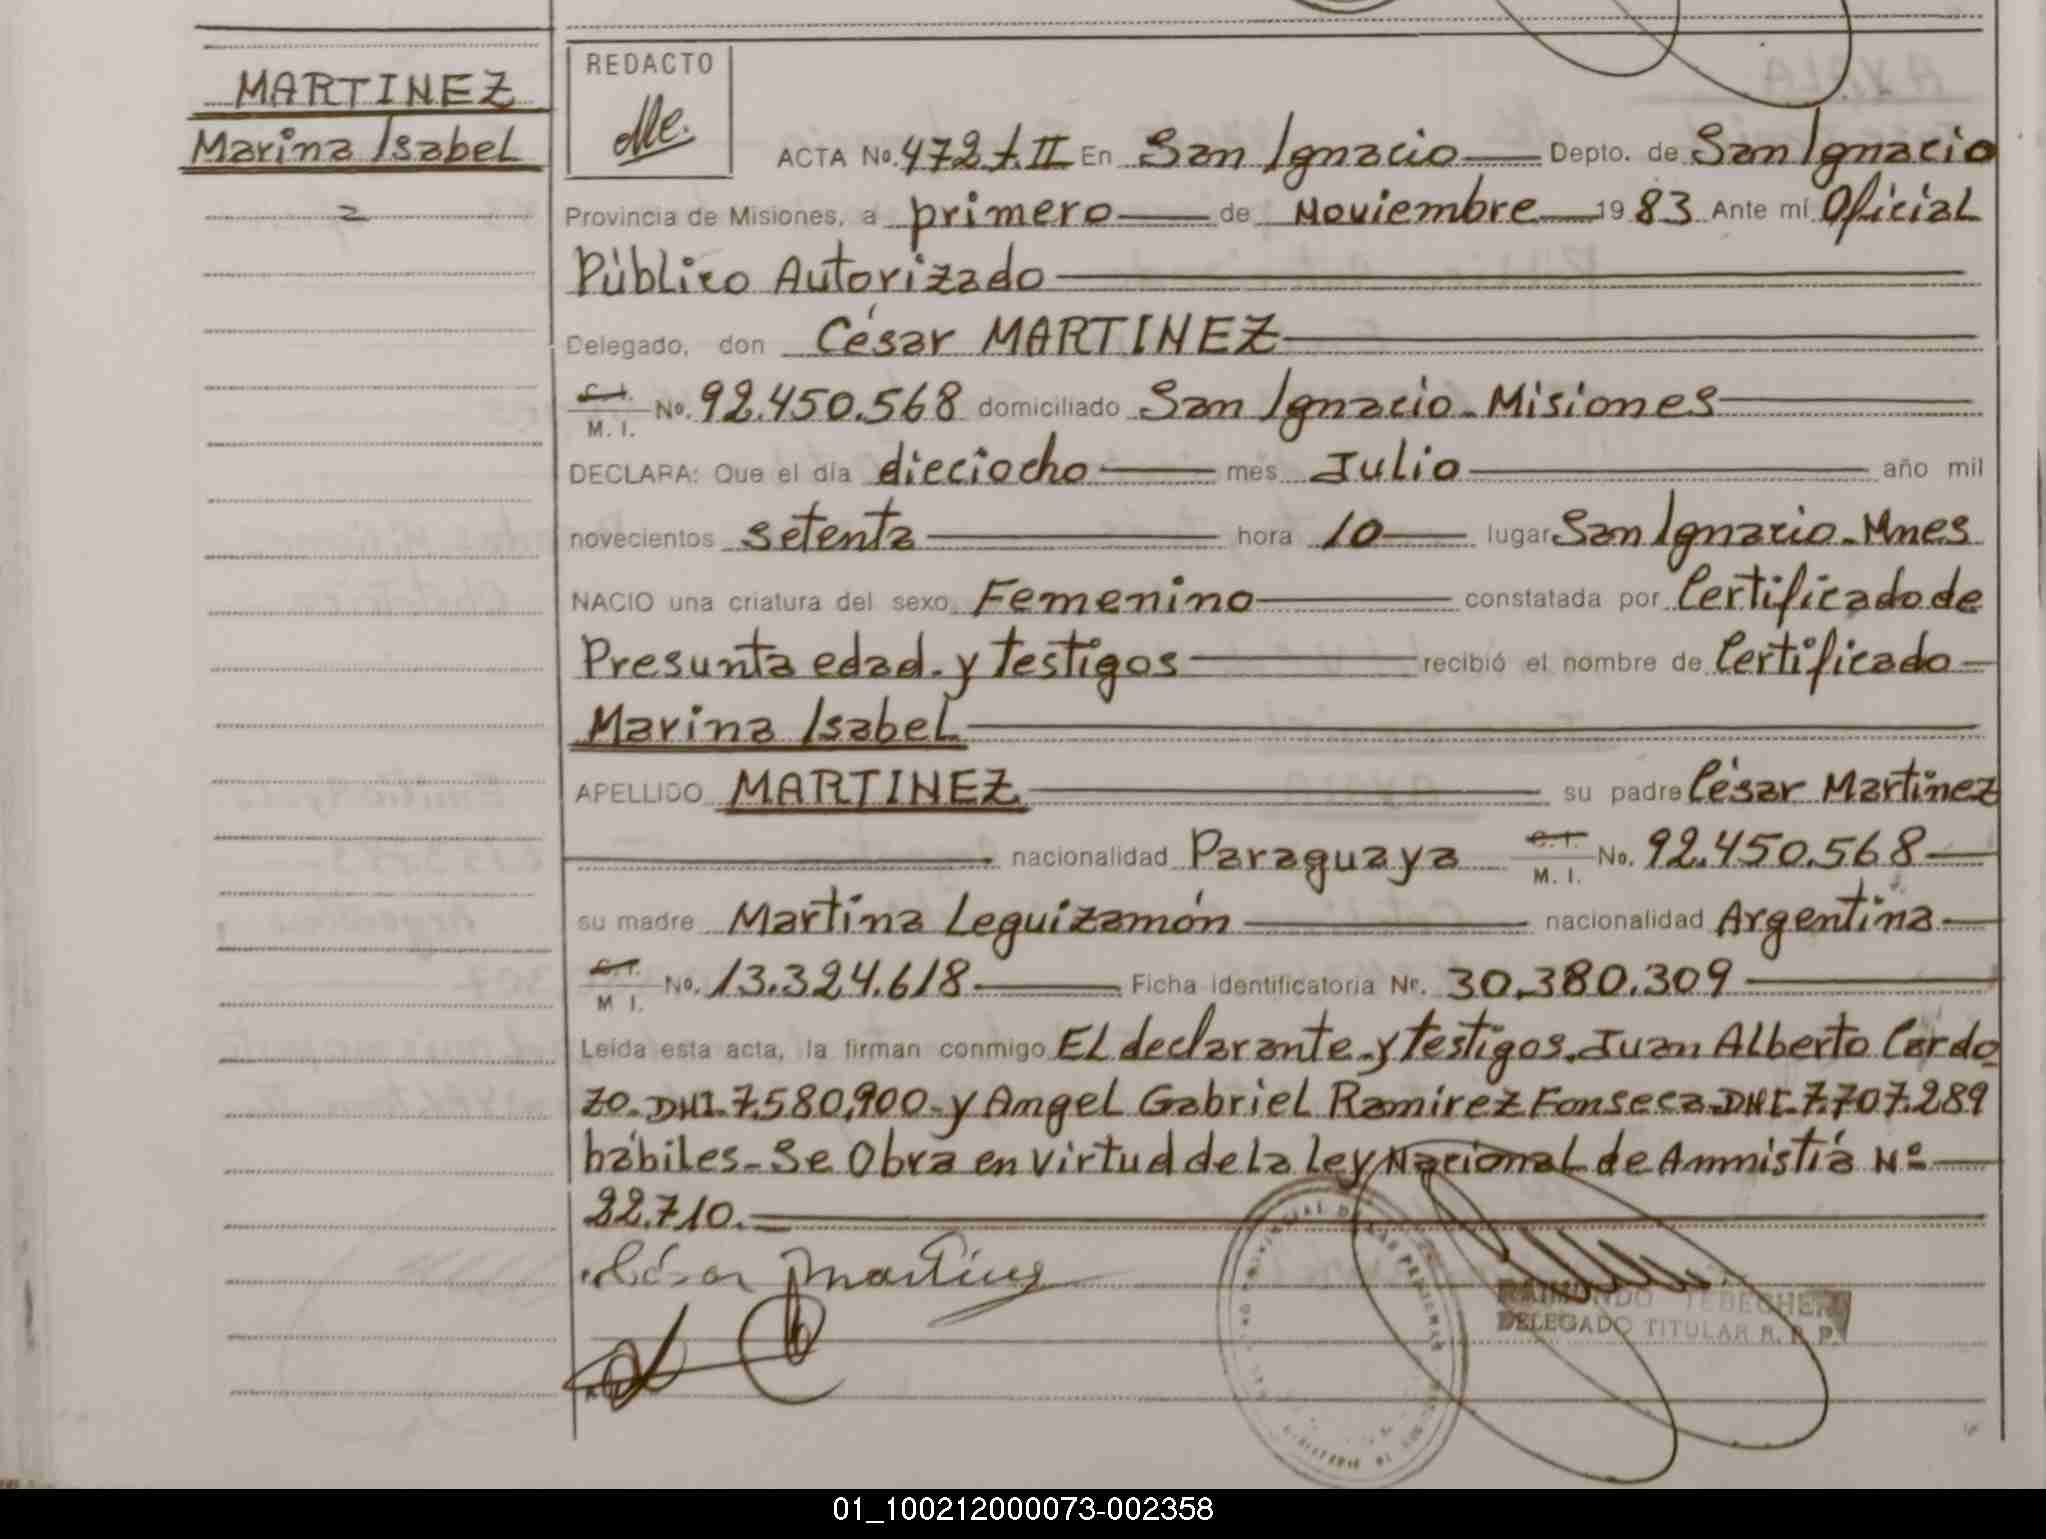 MARTINEZ
Marina Isabel
REDACTO
ACTA No. 472 t. II En San Ignacio Depto. de San Ignacio
Provincia de Misiones, a primero de Noviembre 1983 Ante mí Oficial
Público Autorizado
Delegado, don César MARTINEZ
C.I.
M. I. No. 92.450.568 domiciliado San Ignacio. Misiones
DECLARA: Que el día dieciocho mes Julio año mil
novecientos setenta hora 10 lugar San Ignacio. Mnes
NACIO una criatura del sexo Femenino constatada por Certificado de
Presunta edad. y testigos recibió el nombre de Certificado
Marina Isabel
APELLIDO MARTINEZ su padre César Martinez
nacionalidad Paraguaya C.I. M. I. No. 92.450.568
su madre Martina Leguizamón nacionalidad Argentina
C.I. M. I. No. 13.324.618 Ficha identificatoria Nr. 30.380.309
Leída esta acta, la firman conmigo El declarante y testigos. Juan Alberto Cardo
zo. DNI. 7.580.900 y Angel Gabriel Ramirez Fonseca. DNI. 7.707.289
hábiles. Se Obra en virtud de la ley Nacional de Amnistiá Nº
22.710.
César Martinez
RAIMUNDO
DELEGADO TITULAR R. P. P.
01_100212000073-002358